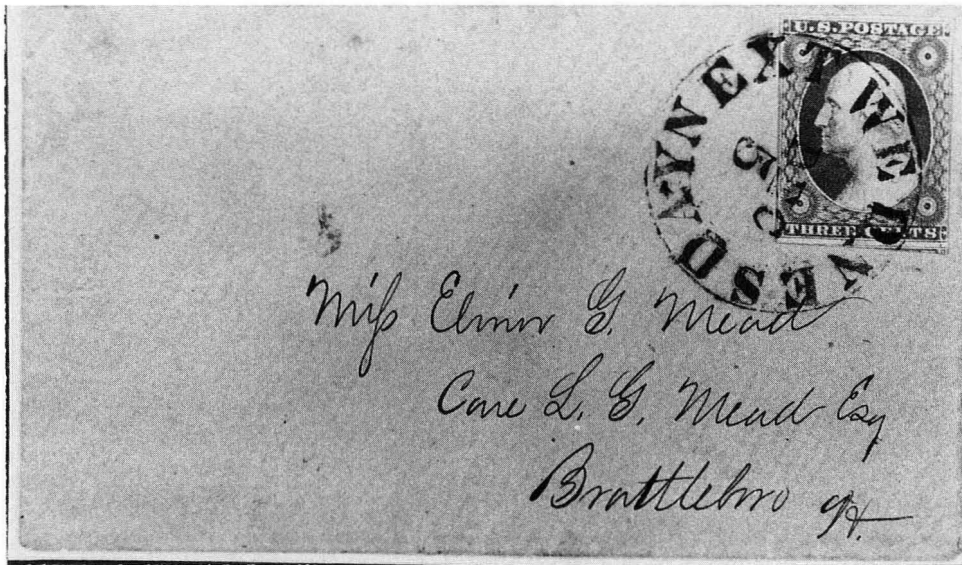 U.S. POSTAGE
THREE CENTS
NEXT WEDNESDAY
Miss Elinor G. Mead
Care L. G. Mead Esq
Brattleboro Vt.